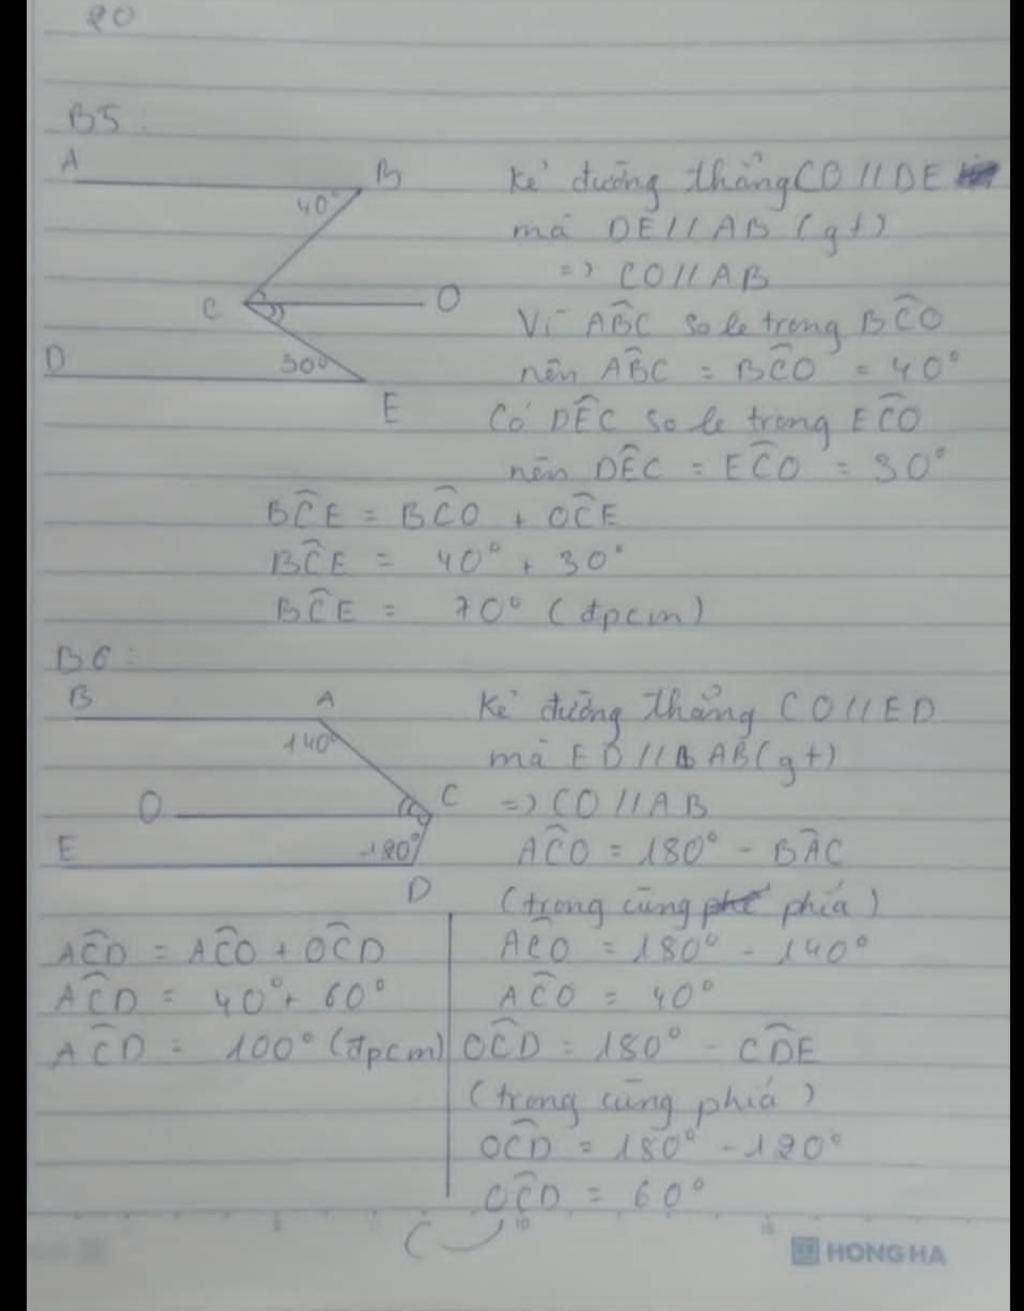 20
B5:
A
B
40°
C
O
D
30°
E
Kẻ đường thẳng CO // DE
mà DE // AB (gt)
=> CO // AB
Vì ABC so le trong BCO
nên ABC = BCO = 40°
Có DEC so le trong ECO
nên DEC = ECO = 30°
BCE = BCO + OCE
BCE = 40° + 30°
BCE = 70° (đpcm)
B6:
B
A
140°
O
C
E
120°
D
Kẻ đường thẳng CO // ED
mà ED // AB (gt)
=> CO // AB
ACO = 180° - BAC
(trong cùng phía)
ACO = 180° - 140°
ACO = 40°
OCD = 180° - CDE
(trong cùng phía)
OCD = 180° - 120°
OCD = 60°
ACD = ACO + OCD
ACD = 40° + 60°
ACD = 100° (đpcm)
10
HONG HA